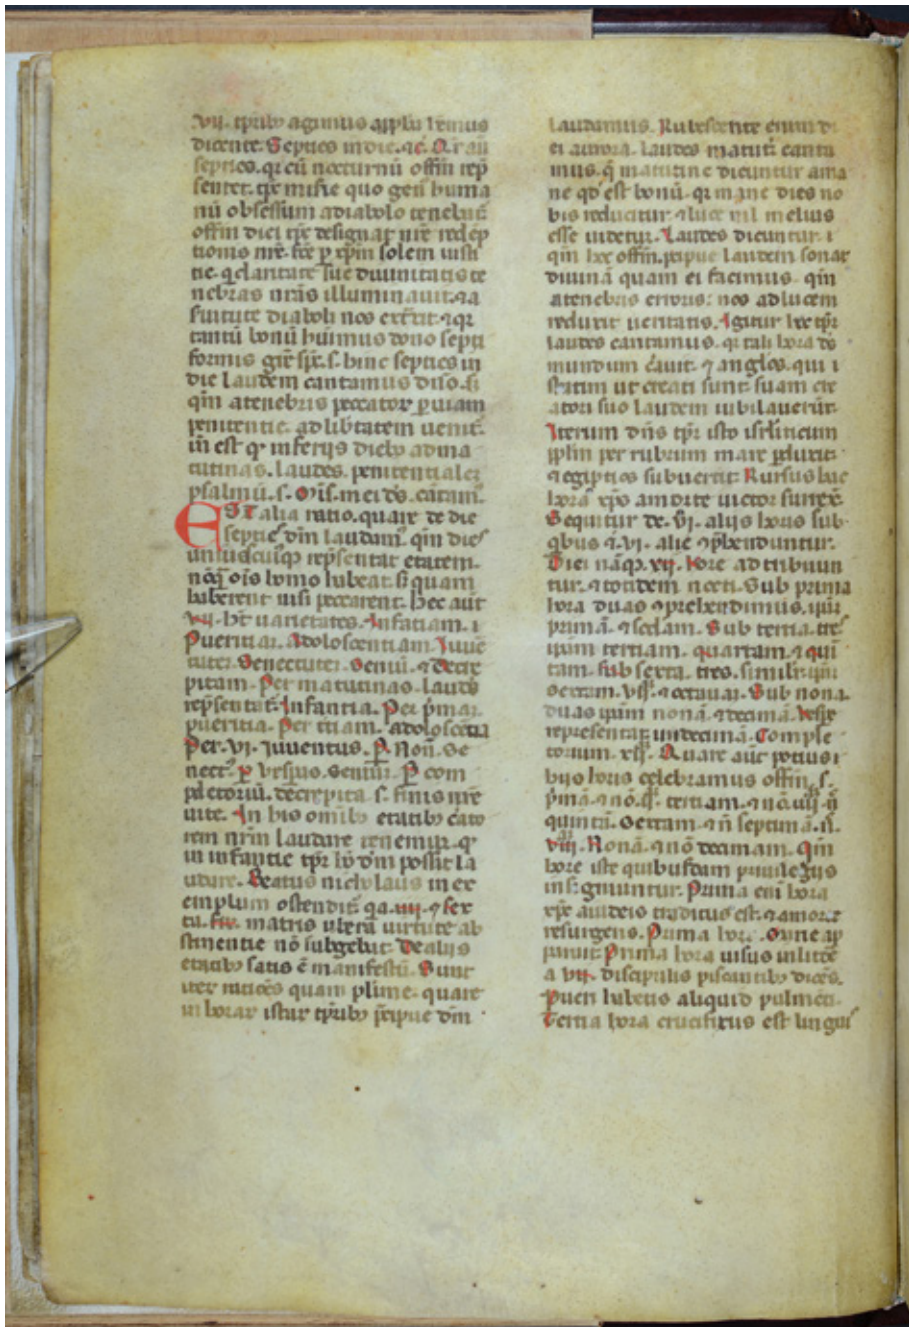 vii. tp̄rib; agimus app̄lu
dicente. Septies in die. ⁊c̄.
septies. qr cū nocturnū offm̄ rep̄
sentet. tp̄r miſ̄ie quo gen̄ huma
nū obsessum a diabolo tenebat̄
offm̄ diei tp̄r designat nr̄e redep
tionis nr̄e. p xp̄m solem iusti
tie. q claritate sue diuinitatis te
nebras nr̄as illuminauit. ⁊ a
ſuitute diaboli nos ext̄it. ⁊ qr
tantū bonū huimus dono septi
formis gr̄e sp̄c. s. hinc septies in
die laudem cantamus dn̄o. si
qm̄ a tenebris peccator p uiam
penitentie. ad lib̄tatem uenit̄.
in̄ est q in ferijs dieb; ad ma
tutinas. laudes. penitentiales
psalmū. s. mei ds. cātam̄.
EST alia ratio. quare de die
septies dm̄ laudam̄. qm̄ dies
unusquisq; rep̄sentat etatem.
ōis homo habeat. si quam
haberent nisi peccarent. hec aut̄
vii. ht̄ uarietates. Infātiam. i
Pueritiā. Adoloscentiam. Iuuē
tutē. Senectutē. Seniū. ⁊ Decre
pitam. Per matutinas. laudes
rep̄sentat̄. Infantia. Per p̄mā.
pueritia. Per t̄tiam. adoloscētia
Per. vi. iuuentus. P. Non̄. se
nect̄. P uesp̄as. seniū. P com
pletoriū. decrepita. s. finis nr̄e
uite. In his omib; etatib; c̄ato
rem nr̄m laudare tenemur. q
in infantie tp̄r dm̄ possit la
udare. Beatus nicholaus in ex
emplum ostendit. qa. iiii. ⁊ sex
ta. matris ubera uirtute ab
stinentie nō subgebat. De aliis
etatib; satis ē manifestū. Sunt
iter. quare
in horas istas tp̄rib; p̄cipue dm̄
laudamus. Rubescente enim d
ei aurora. laudes matut̄. canta
mus. q matutine dicuntur a ma
ne qd̄ est bonū. qr mane dies no
bis reducitur. ⁊ luce nil melius
esse uidetur. Laudes dicuntur. i
qm̄ hec offm̄. p̄cipue laudem sonat
diuinā quam ei facimus. qm̄
a tenebris erroris: nos ad lucem
reduxit ueritatis. Igitur hec tp̄r
laudes cantamus. qr tali hora ds̄
mundum c̄auit. ⁊ angl̄os. qui i
statim ut creati sunt. suam cre
atori suo laudem iubilauer̄t.
Iterum dn̄s tp̄r isto isrl̄iticum
pplm̄ per rubrum mare pduxit.
⁊ egiptios subuertit. Rursus hac
hora xp̄s a morte uictor surrex̄.
Sequitur de. vi. aliis horis sub
qbus ⁊. vi. alie ⁊p̄henduntur.
Diei nāq;. xii. hore ad tribuun
tur. ⁊ totidem nocti. Sub prima
hora duas ⁊prehendimus. ip̄ā
primā. ⁊ sc̄dam. Sub tertia. tres
ip̄am tertiam. quartam. ⁊ quī
tam. sub sexta. tres. simil̄r. ip̄ā
sextam. vii. ⁊ octauā. Sub nona
duas ip̄am nonā. ⁊ decimā. Uesp̄e
representat undecimā. Comple
torium. xii. Quare aut̄ potius i
hijs horis celebramus offm̄. s.
p̄mā. ⁊ nō. tertiam. ⁊ nō
quintā. Sextam. ⁊ n̄ septimā.
viii. Nonā. ⁊ nō decimam. Qm̄
hore iste quibusdam priuilegiis
insigniuntur. Prima eni hora
xp̄c a iudeis traditus est. ⁊ a morte
resurgens. Prima hora. ap
paruit. Prima hora uisus in litore
a vii. discipulis piscantib; dicēs.
Pueri habetis aliquid pulmēt.
Tertia hora crucifixus est linguis